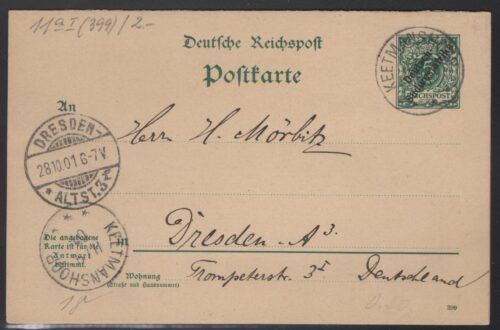 11a I (399) / 2.-
Deutsche Reichspost
Postkarte
KEETMANSHOOP
REICHSPOST
An
Herrn H. Mörbitz
DRESDEN-
28.10.01.6-7V.
* ALTST. 3 *
KEETMANSHOOP
Die angebogene
Karte ist für die
Antwort
bestimmt.
in Dresden-A3.
Wohnung
(Straße und Hausnummer)
Trompeterstr. 3I Deutschland
399